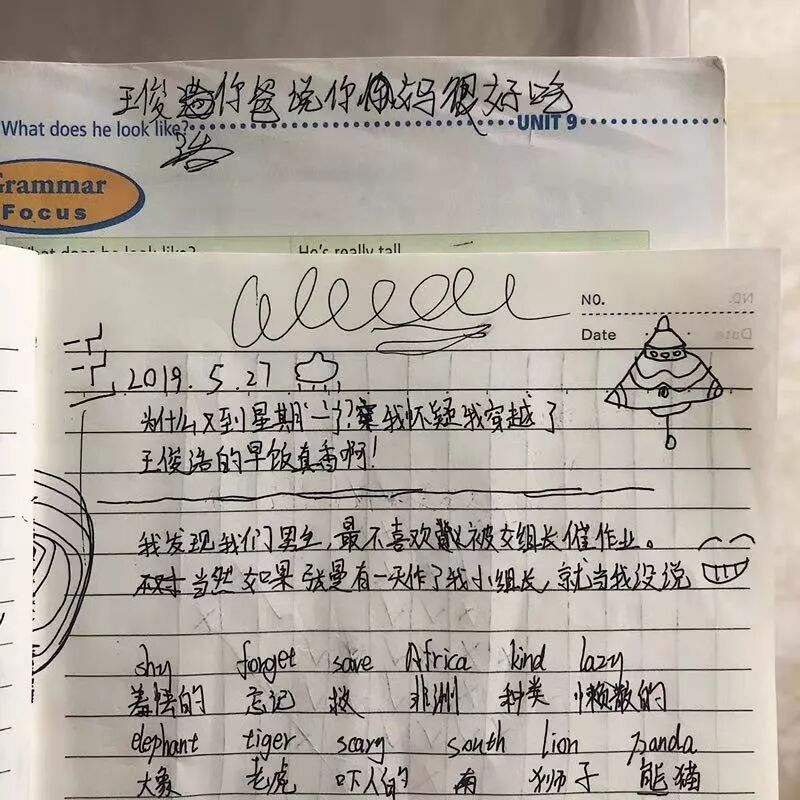 王俊浩你爸说你妈很好吃
What does he look like? UNIT 9
浩
Grammar
Focus
What does he look like? He's really tall
NO.
Date
2019.5.27
为什么又到星期一了?我怀疑我穿越了
王俊浩的早饭真香啊!
我发现我们男生,最不喜欢被女组长催作业。
当然如果张曼有一天作了我小组长,就当我没说
shy forget save Africa kind lazy
羞怯的 忘记 救 非洲 种类 懒散的
elephant tiger scary south lion panda
大象 老虎 吓人的 南 狮子 熊猫